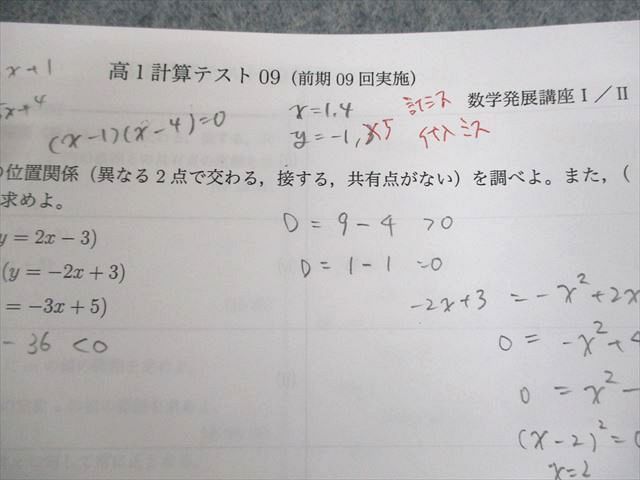 x+1
高1計算テスト09 (前期09回実施)
x+4
数学発展講座Ⅰ／Ⅱ
(x-1)(x-4)=0
x=1,4
計ミス
y=-1, 5
代入ミス
の位置関係（異なる2点で交わる，接する，共有点がない）を調べよ。また，(
求めよ。
D = 9 - 4 >0
y = 2x - 3)
D = 1 - 1 =0
(y = -2x + 3)
= -3x + 5)
-2x+3 = -x²+2x
- 36 <0
0 = -x²+4
0 = x²-
(x-2)²=0
x=2